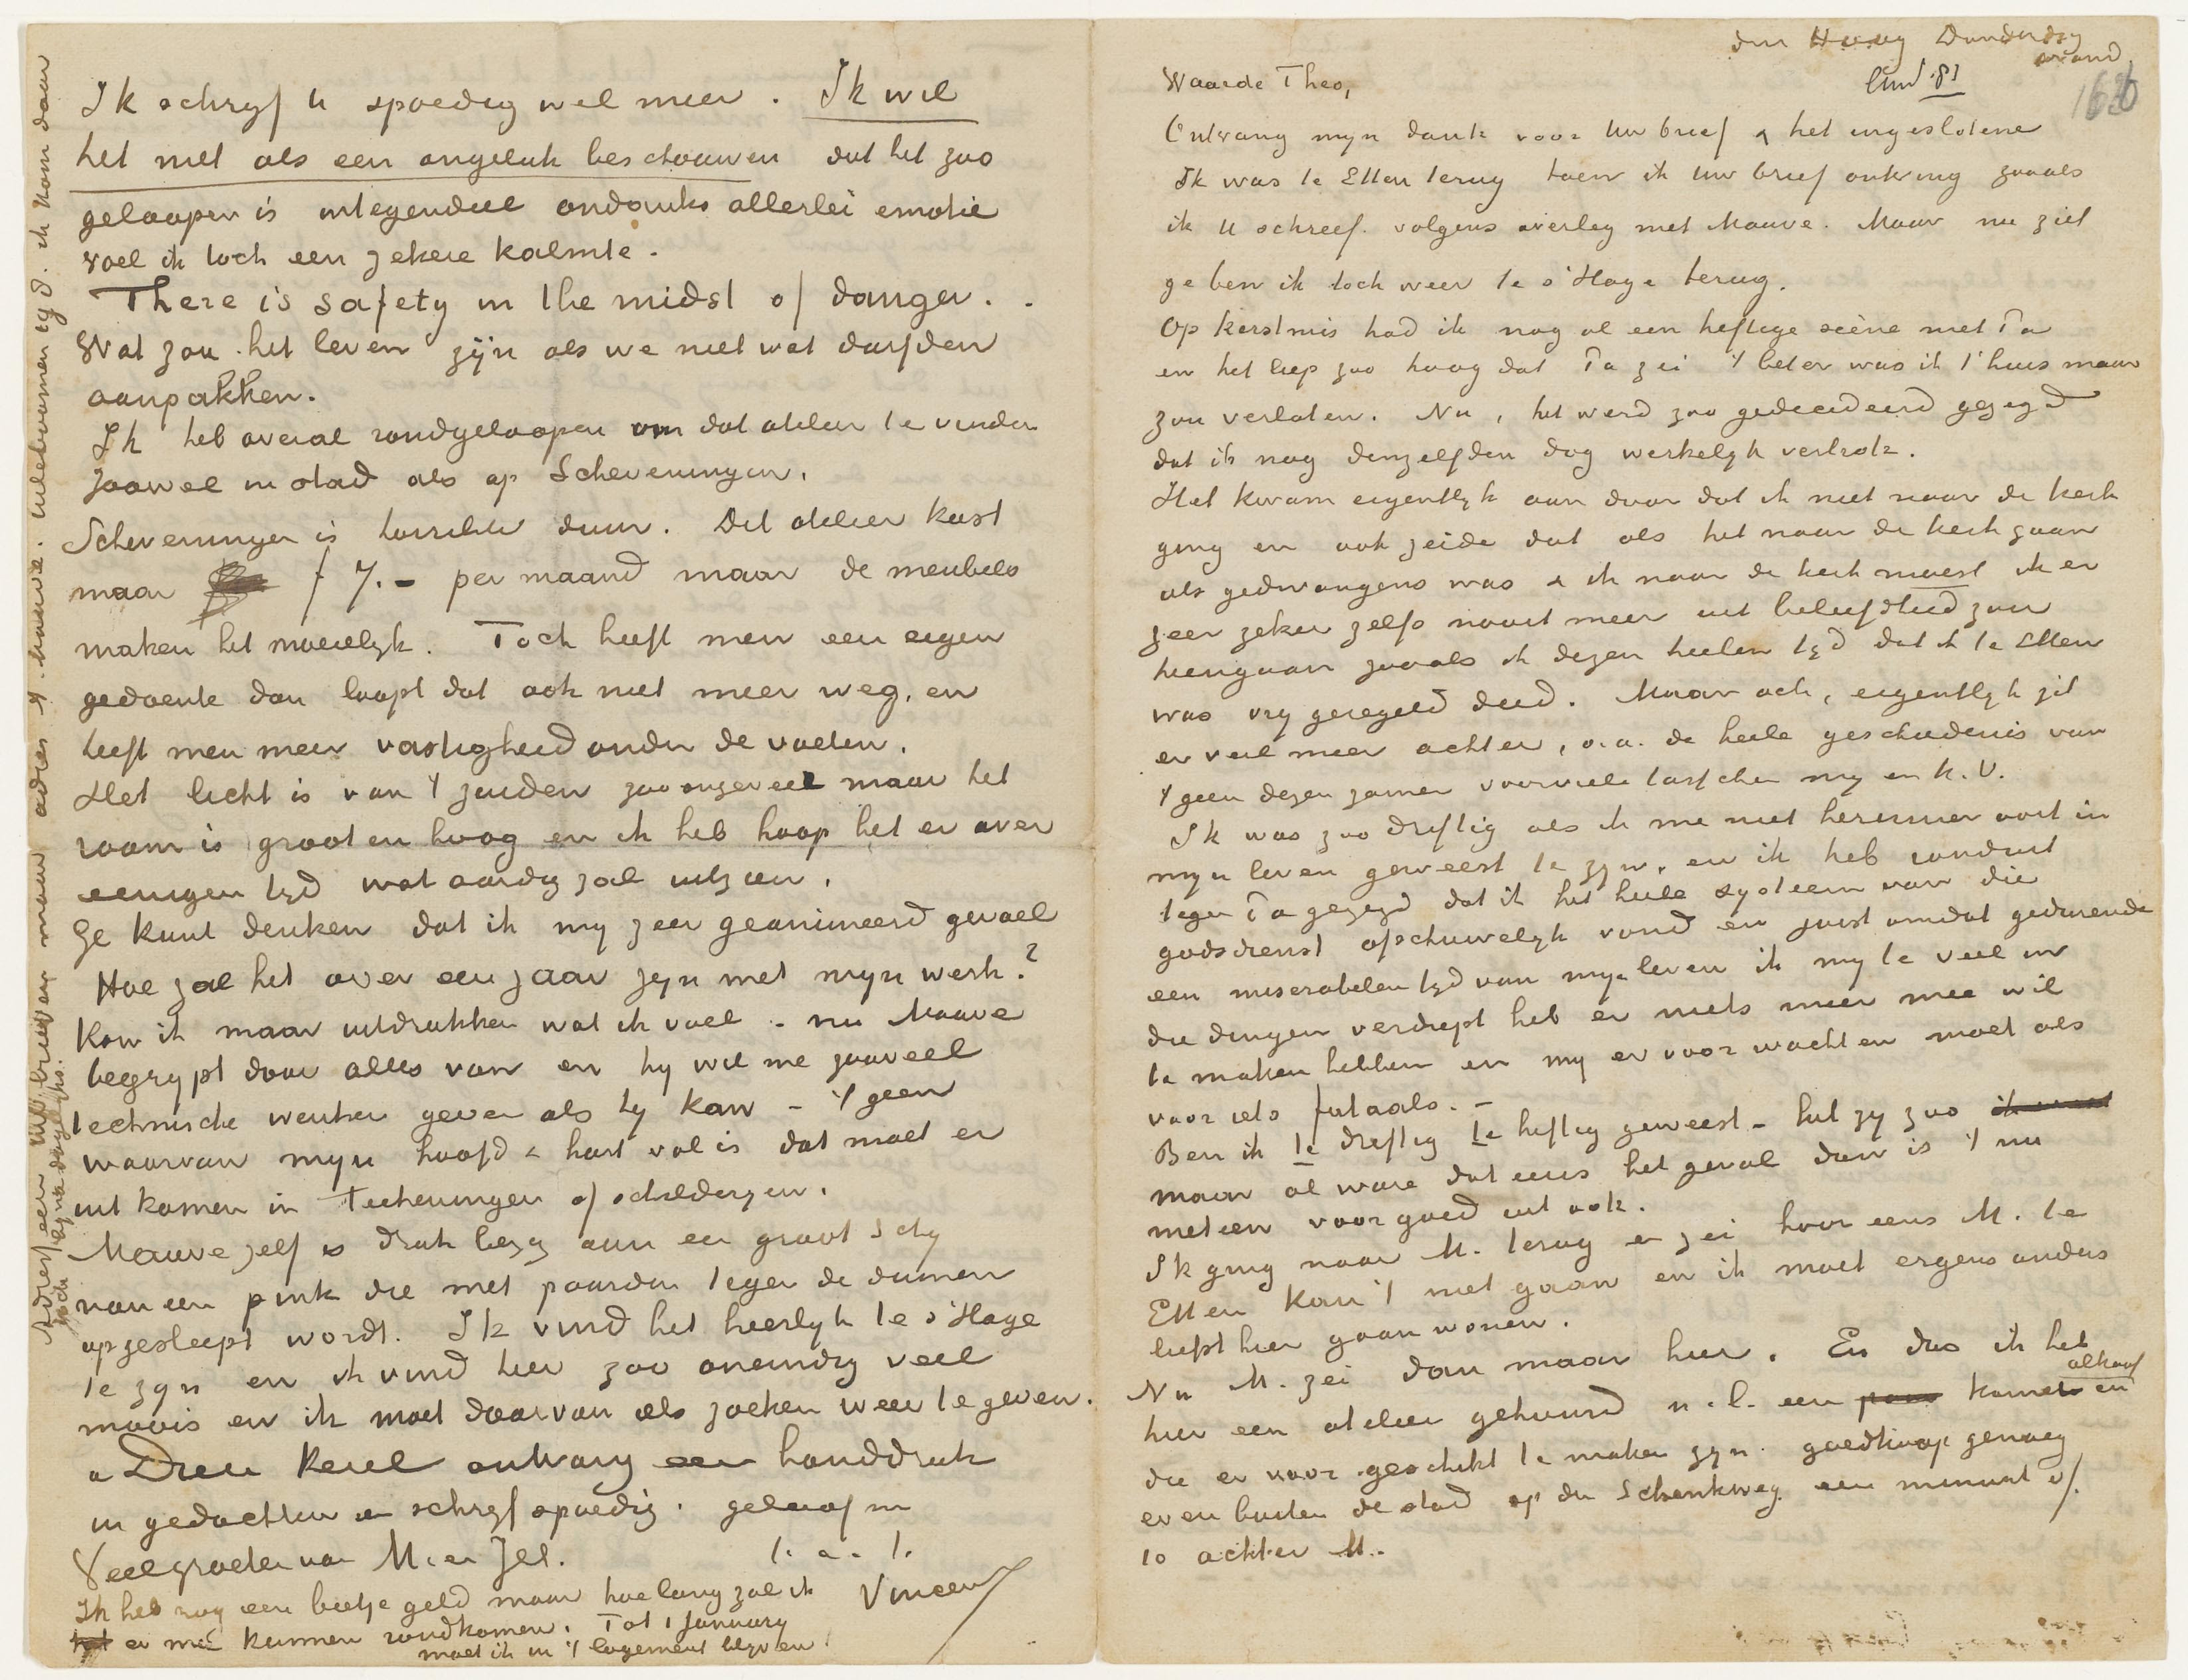 den Haag Donderdag
avond
Eind 81
Waarde Theo,
Ontvang myn dank voor Uw brief & het ingeslotene
Ik was te Etten terug toen ik Uw brief ontving zooals
ik U schreef. volgens overleg met Mauve. Maar nu ziet
ge ben ik toch weer te s'Hage terug.
Op kerstmis had ik nog al een heftige scène met Pa
en het liep zoo hoog dat Pa zei 't beter was ik 't huis maar
zou verlaten. Nu, het werd zoo gedecideerd gezegd
dat ik nog denzelfden dag werkelyk vertrok.
Het kwam eigentlyk aan door dat ik niet naar de kerk
ging en ook zeide dat als het naar de kerk gaan
als gedwongens was & ik naar de kerk moest ik er
zeer zeker zelfs nooit meer uit beleefdheid zou
heengaan zooals ik dezen heelen tyd dat ik te Etten
was vry geregeld deed. Maar ach, eigentlyk zit
er veel meer achter, o.a. de heele geschiedenis van
't geen dezen zomer voorviel tusschen my en K.V.
Ik was zoo driftig als ik me niet herinner ooit in
myn leven geweest te zyn, en ik heb ronduit
tegen Pa gezegd dat ik het heele systeem van die
godsdienst afschuwelyk vond en juist omdat gedurende
een miserabelen tyd van myn leven ik my te veel in
die dingen verdiept heb er niets meer mee wil
te maken hebben en my er voor wachten moet als
voor iets fataals. -
Ben ik te driftig te heftig geweest - het zy zoo
maar al ware dat eens het geval dan is 't nu
meteen voor goed uit ook.
Ik ging naar M. terug en zei hoor eens M. te
Etten kan 't niet gaan en ik moet ergens anders
liefst hier gaan wonen.
Nu M. zei dan maar hier. En dus ik heb
alkoof
hier een atelier gehuurd n.l. een kamer en
die er voor geschikt te maken zyn. goedkoop genoeg
even buiten de stad op den Schenkweg een minuut of
10 achter M.
Ik schryf U spoedig wel meer. Ik wil
het niet als een ongeluk beschouwen dat het zoo
geloopen is integendeel ondanks allerlei emotie
voel ik toch een zekere kalmte.
There is safety in the midst of danger.
Wat zou het leven zijn als we niet wat durfden
aanpakken.
Ik heb overal rondgeloopen om dat atelier te vinden
zoowel in stad als op Scheveningen.
Scheveningen is horrible duur. Dit atelier kost
maar f 7.- per maand maar de meubels
maken het moeielyk. Toch heeft men een eigen
gedoente dan loopt dat ook niet meer weg, en
heeft men meer vastigheid onder de voeten.
Het licht is van 't zuiden zoo ongeveer maar het
raam is groot en hoog en ik heb hoop het er over
eenigen tyd wat aardig zal uitzien.
Ge kunt denken dat ik my zeer geanimeerd gevoel
Hoe zal het over een jaar zyn met myn werk?
Kon ik maar uitdrukken wat ik voel - nu Mauve
begrypt daar alles van en hy wil me zooveel
technische wenken geven als hy kan - 't geen
waarvan myn hoofd & hart vol is dat moet er
uit komen in Teekeningen of schilderyen.
Mauve zelf is druk bezig aan een groot schy
van een pink die met paarden tegen de duinen
opgesleept wordt. Ik vind het heerlyk te s'Hage
te zyn en ik vind hier zoo oneindig veel
moois en ik moet daarvan iets zoeken weer te geven.
a Dieu kerel ontvang een handdruk
in gedachten en schryf spoedig. geloof m
Veel groeten van M. en Jet. t. a. t.
Vincent
Ik heb nog een beetje geld maar hoe lang zal ik
er mee kunnen rondkomen. Tot 1 January
moet ik in 't logement blyven
Adresseer Uw brieven maar adres A. Mauve. Uileboomen 198. ik kom daar
toch byna dagelyks.